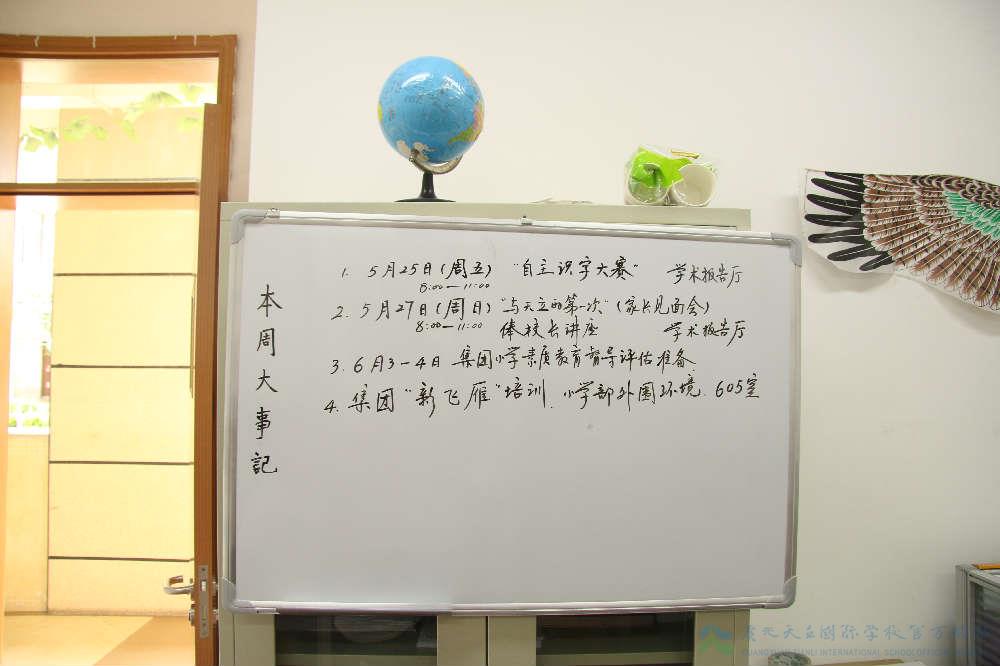 本周大事記
1. 5月25日(周五) "自主识字大赛" 学术报告厅
8:00—11:00
2. 5月27日(周日) "与天立的第一次"(家长见面会)
8:00—11:00 俸校长讲座 学术报告厅
3. 6月3-4日 集团小学素质教育督导评估准备.
4. 集团"新飞雁"培训. 小学部外围环境. 605室
广元天立国际学校官方
GUANGYUAN TIANLI INTERNATIONAL SCHOOL OFFICIAL